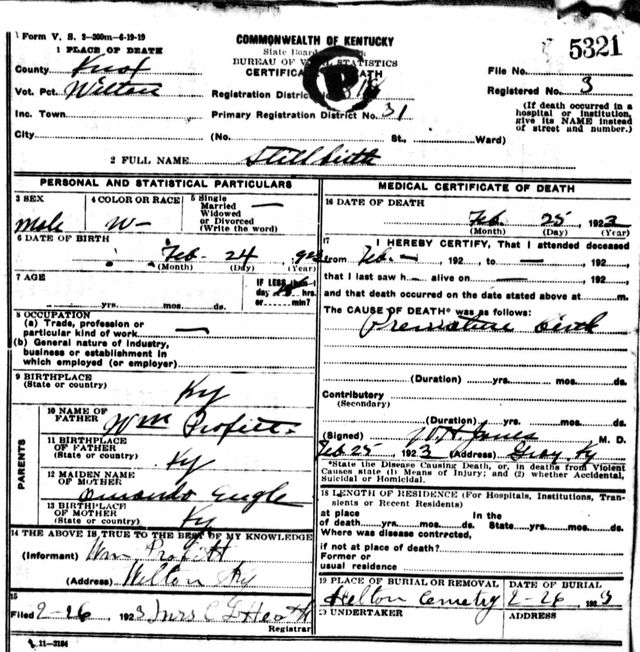 Form V. S. 2-300m-6-19-19
COMMONWEALTH OF KENTUCKY
State Board
BUREAU OF VITAL STATISTICS
CERTIFICATE DEATH
P
5321
1 PLACE OF DEATH
County Knox
File No.
Vot. Pct Wilton
Registration District No.
Registered No. 3
Inc. Town
Primary Registration District No. 31
(If death occurred in a hospital or institution, give its NAME instead of street and number.)
City (No. St., Ward)
2 FULL NAME Stillbirth
PERSONAL AND STATISTICAL PARTICULARS
3 SEX Male
4 COLOR OR RACE W-
5 Single Married Widowed or Divorced (Write the word) —
6 DATE OF BIRTH Feb - 24, 923
(Month) (Day) (Year)
7 AGE yrs. mos. ds. IF LESS than 1 day hrs. or min?
8 OCCUPATION
(a) Trade, profession or particular kind of work —
(b) General nature of industry, business or establishment in which employed (or employer)
9 BIRTHPLACE (State or country) Ky
PARENTS
10 NAME OF FATHER Wm Profitt
11 BIRTHPLACE OF FATHER (State or country) Ky
12 MAIDEN NAME OF MOTHER Amanda Engle
13 BIRTHPLACE OF MOTHER (State or country) Ky
14 THE ABOVE IS TRUE TO THE BEST OF MY KNOWLEDGE
(Informant) Wm Profitt
(Address) Wilton Ky
15
Filed 2-26, 1923 Mrs C
Registrar
11-3184
MEDICAL CERTIFICATE OF DEATH
16 DATE OF DEATH
Feb 25, 1923
(Month) (Day) (Year)
17 I HEREBY CERTIFY, That I attended deceased
from Feb -, 192 to —, 192
that I last saw h— alive on —, 192
and that death occurred on the date stated above at m.
The CAUSE OF DEATH* was as follows:
Premature birth
(Duration) yrs. mos. ds.
Contributory
(Secondary)
(Duration) yrs. mos. ds.
(Signed) Jones M. D.
Feb 25, 1923 (Address) Gray, Ky
*State the Disease Causing Death, or, in deaths from Violent Causes state (1) Means of Injury; and (2) whether Accidental, Suicidal or Homicidal.
18 LENGTH OF RESIDENCE (For Hospitals, Institutions, Transients or Recent Residents)
at place of death yrs. mos. ds. In the State yrs. mos. ds.
Where was disease contracted,
if not at place of death?
Former or usual residence
19 PLACE OF BURIAL OR REMOVAL Helton Cemetry
DATE OF BURIAL 2-26, 1923
UNDERTAKER
ADDRESS